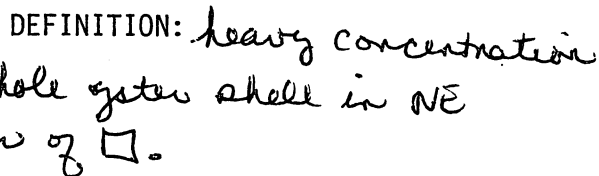 DEFINITION: heavy concentration
hole oyster shell in NE
of □.